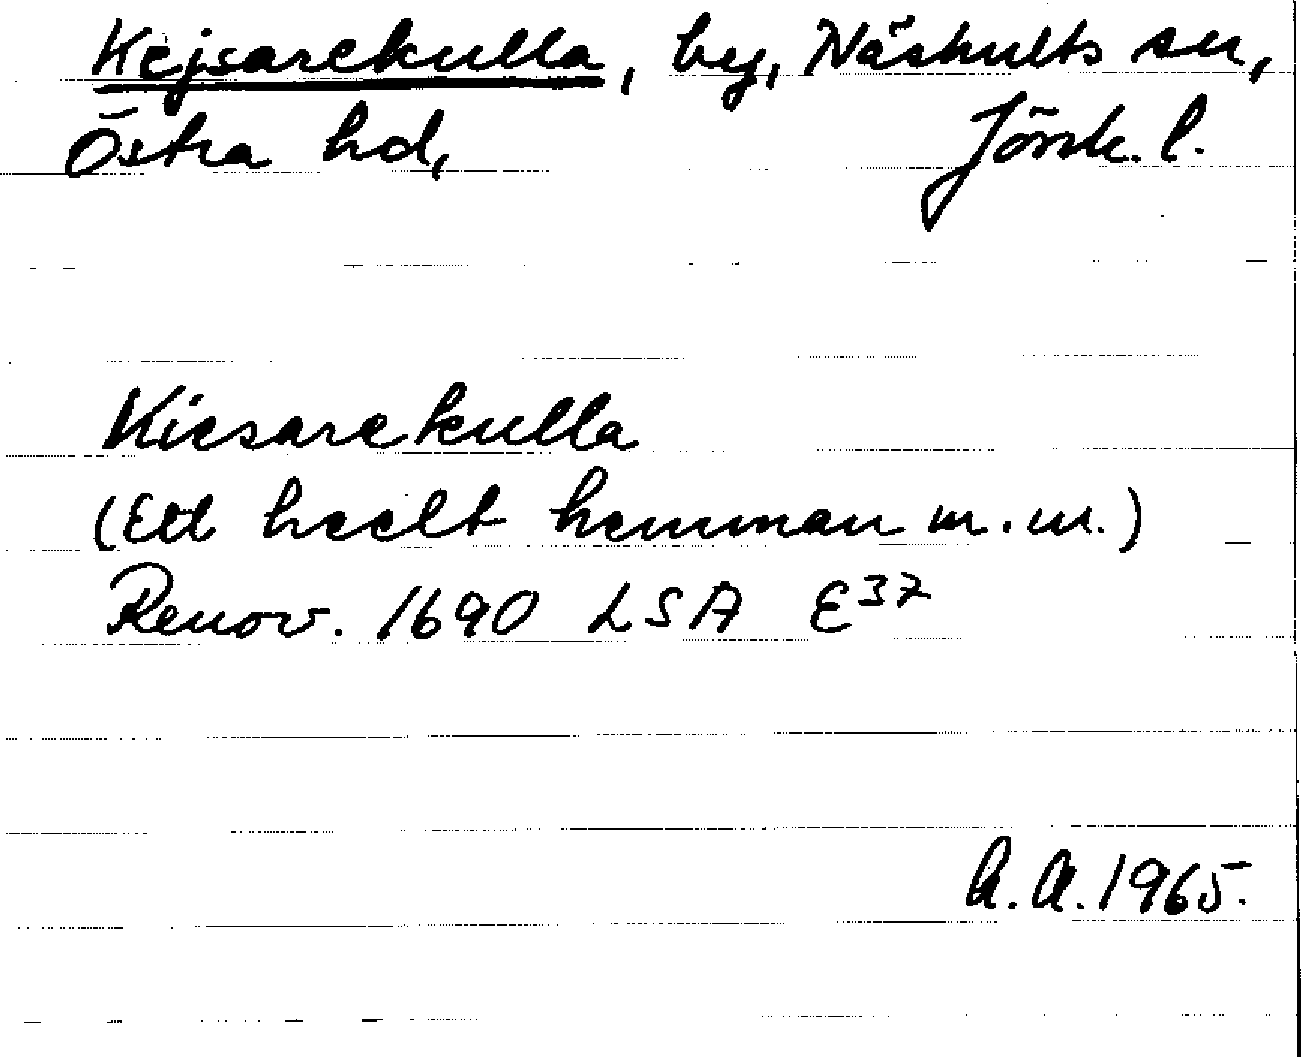 Kejsarekulla, by, Näshults sn,
Östra hd, Jönk. l.
Kiesarekulla
(Ett heelt hemman m.m.)
Renov. 1690 LSA E37
A.A. 1965.